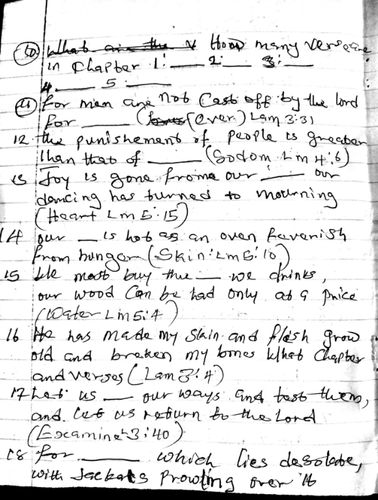 (10) What are the v How many verse are
in Chapter 1: __ 2: __ 3: __
4. __ 5 __
(11) For men are not Cast off by the lord
for ____ (ever) Lam 3:31
12 the punishement of people is greater
than that of ____ (Sodom Lm 4:6)
13 Joy is gone frome our __ our
dancing has turned to mourning
(Heart Lm 5:15)
14 our __ is hot as an oven feverish
from hunger (Skin: Lm 5:10)
15 We most buy the __ we drinks,
our wood Can be had only at a price
(Water Lm 5:4)
16 He has made my skin and flesh grow
old and broken my bones What Chapter
and verses (Lam 3:4)
17 Let us __ our ways and test them,
and let us return to the Lord
(Examine 3:40)
18 for ____ which lies desolate,
with Jackals prowling over it